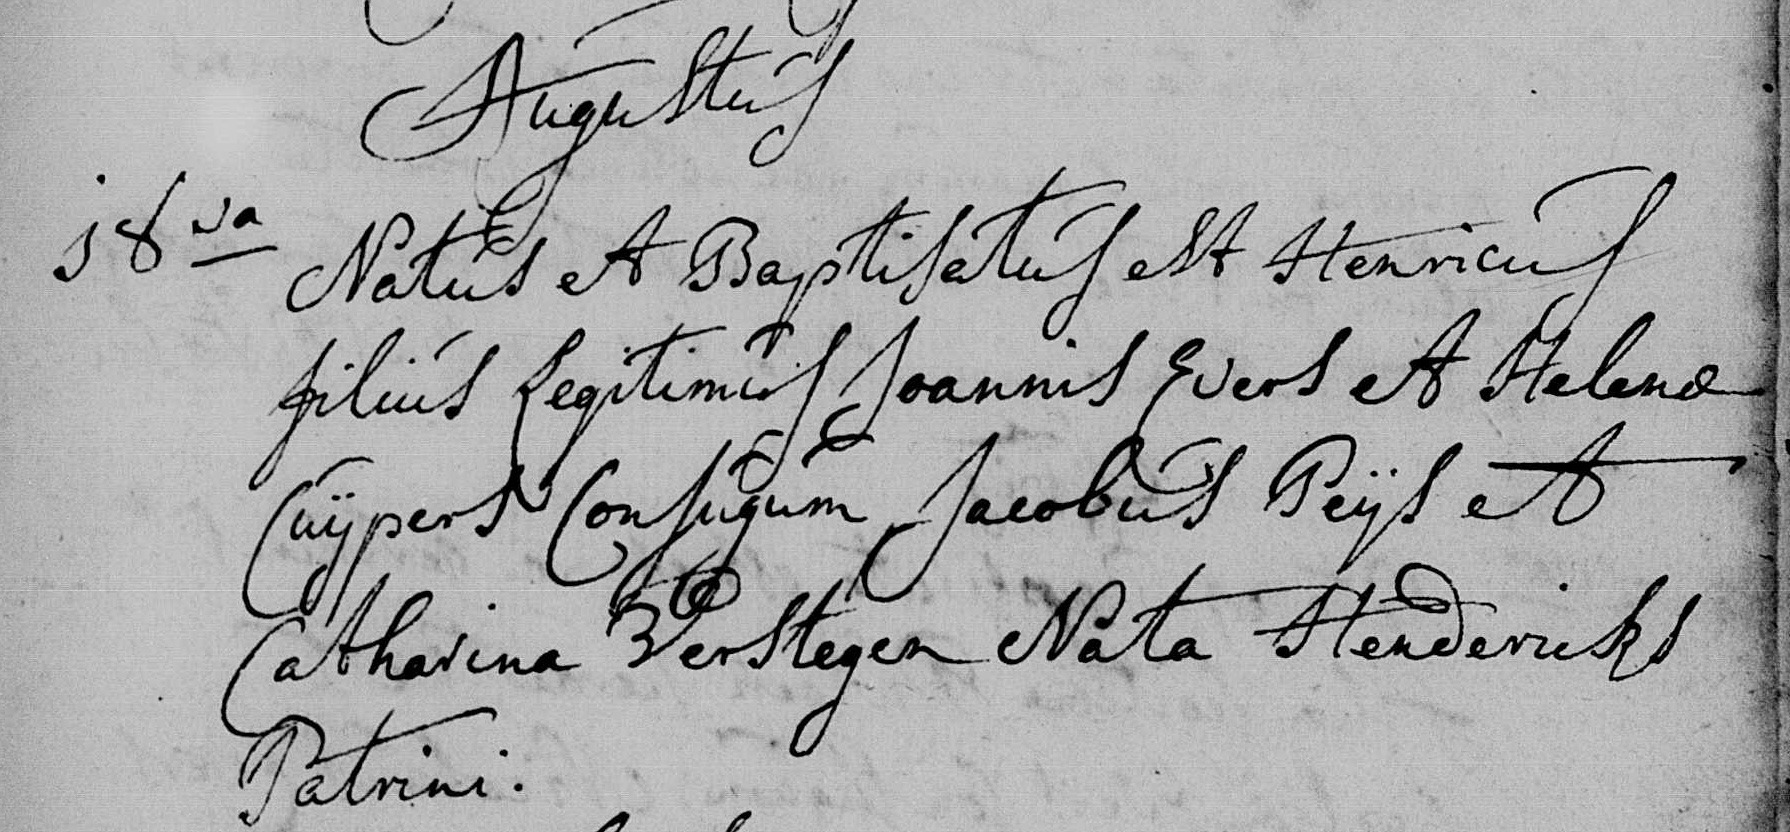 Augustus
18va Natus et Baptisatus est Henricus
filius Legitimus Joannis Evers et Helenæ
Cuÿpers Conjugum Jacobus Peÿs et
Catharina Verstegen Nata Hendericks
Patrini.